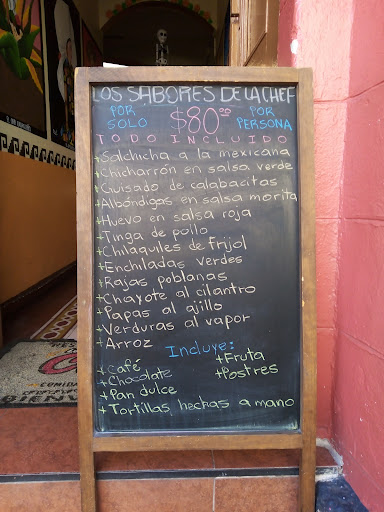 LOS SABORES DE LA CHEF
POR SOLO $80.00 POR PERSONA
TODO INCLUIDO
+Salchicha a la mexicana
+Chicharrón en salsa verde
+Guisado de calabacitas
+Albóndigas en salsa morita
+Huevo en salsa roja
+Tinga de pollo
+Chilaquiles de Frijol
+Enchiladas verdes
+Rajas poblanas
+Chayote al cilantro
+Papas al ajillo
+Verduras al vapor
+Arroz
Incluye:
+Café
+Chocolate
+Pan dulce
+Tortillas hechas a mano
+Fruta
+Postres